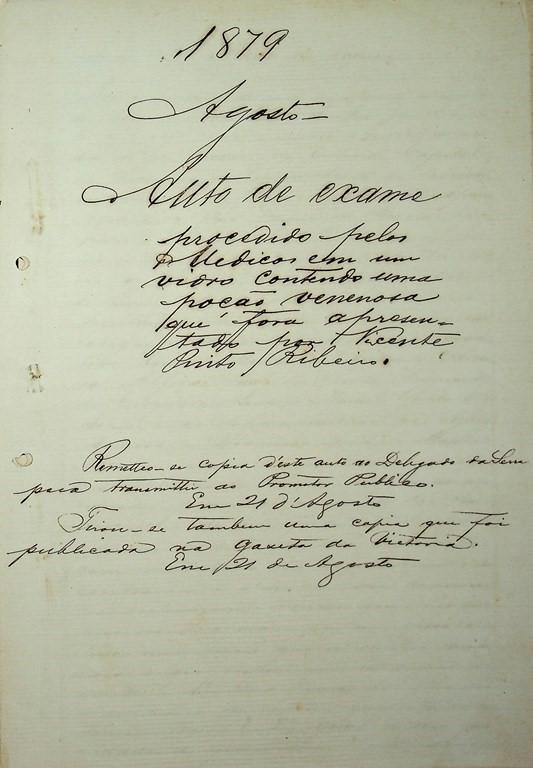 1879
Agosto—
Auto de exame
procedido pelos
Medicos em um
vidro contendo uma
poção venenosa
que fora apresen-
tado por Vicente
Pinto Ribeiro.
Remetteo-se copia d'este auto ao Delegado da Serra
para transmittir ao Promotor Publico.
Em 21 d'Agosto
Tirou-se tambem uma copia que foi
publicada na Gazeta da Victoria.
Em 21 de Agosto